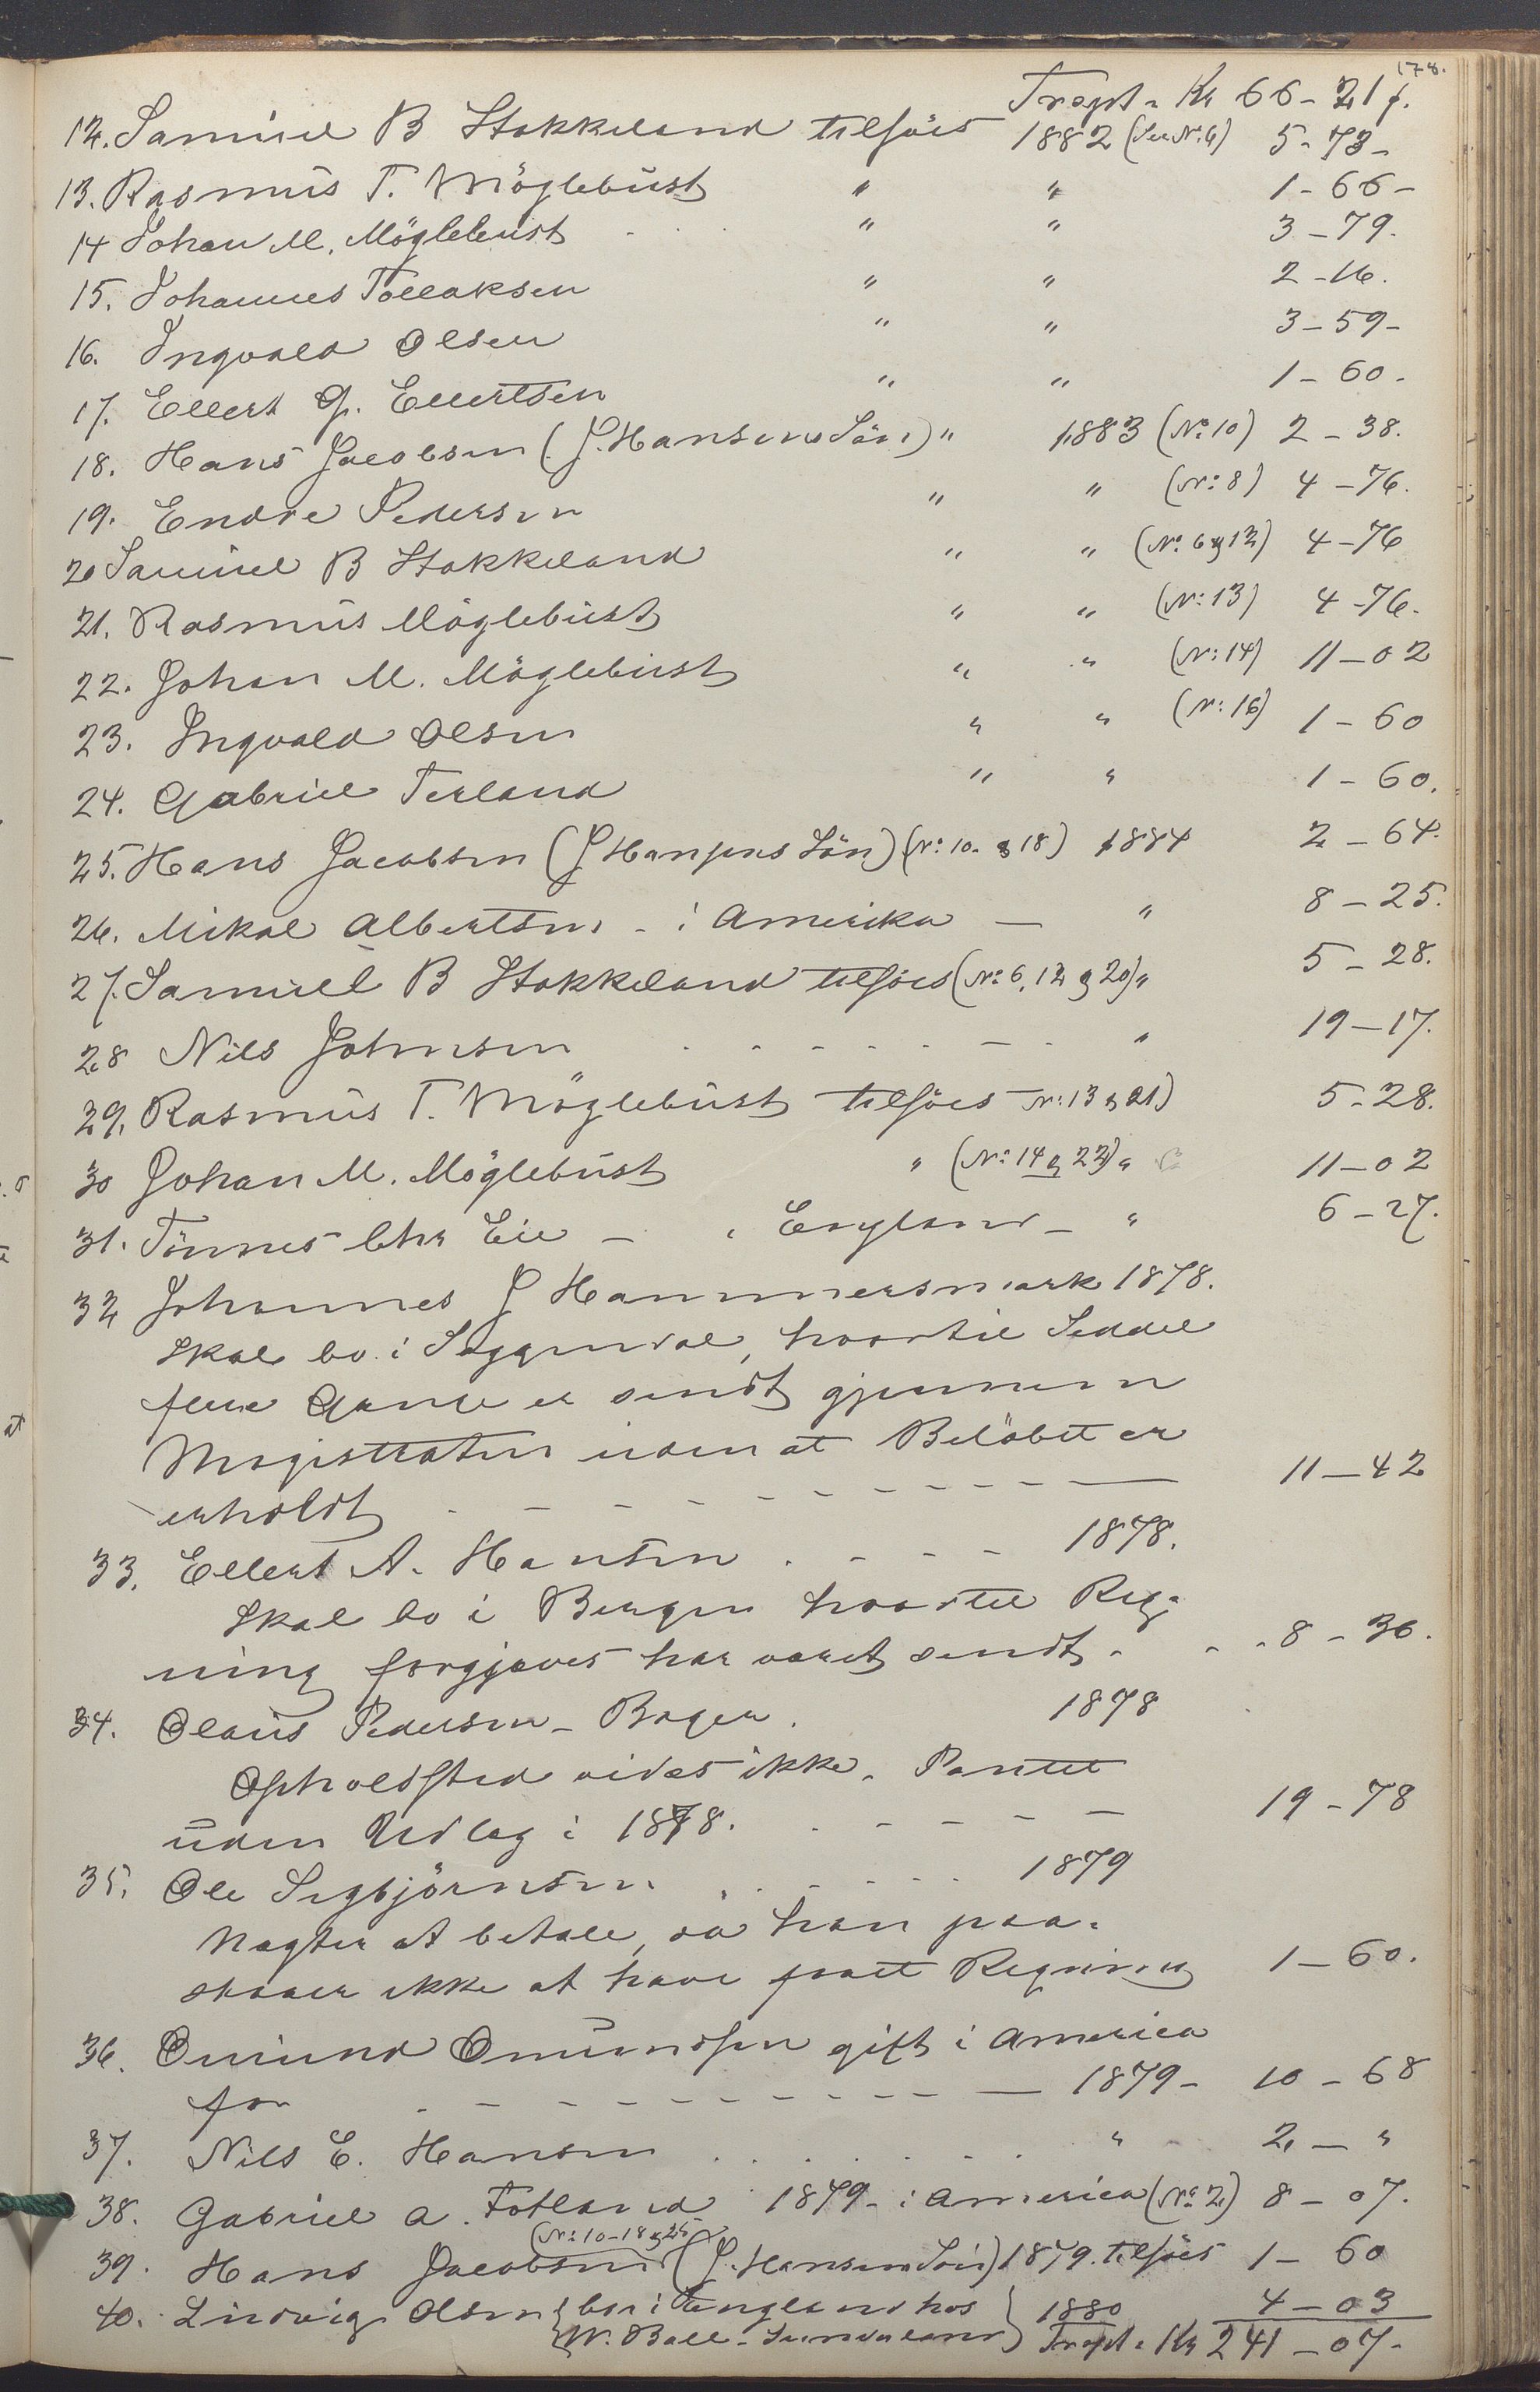 178.
Trspt. Kr 66-21 f.
12. Samuel B Stokkeland tilsöes 1882 (See No. 6) 5-73-
13. Rasmus T. Möglebust " " 1-66-
14 Johan M. Möglebust " " 3-79.
15. Johannes Tollaksen " " 2-16.
16. Ingvald Olsen " " 3-59-
17. Ellert G. Ellertsen " " 1-60.
18. Hans Jacobsen (J. Hansens Sön) " 1883 (No. 10) 2-38.
19. Endre Pedersen " " (No: 8) 4-76.
20 Samuel B Stokkeland " " (No. 6 & 12) 4-76
21. Rasmus Möglebust " " (No: 13) 4-76.
22. Johan M. Möglebust " " (No: 14) 11-02
23. Ingvald Olsen " " (No: 16) 1-60
24. Gabriel Terland " " 1-60.
25. Hans Jacobsen (J Hansens Sön) (No. 10. & 18) 1884 2-64.
26. Mikal Albertsen - i Amerika — " 8-25.
27. Samuel B Stokkeland tilsöes (No: 6, 12 & 20) " 5-28.
28 Nils Johnsen " 19-17.
29. Rasmus T. Möglebust tilsöes No: 13 & 21) 5-28.
30 Johan M. Möglebust " (No: 14 & 22) " 11-02
31. Tönnes Chr Eie - i England - " 6-27.
32 Johannes J Hammersmark 1878.
skal bo i Soggendal, hvortil Seddel
flere Gange er sendt gjennem
Magistraten uden at Belöbet er
erholdt - - - - - - - 11-42
33. Ellert A. Hansen . - - - 1878.
skal bo i Bergen hvortil Reg-
ning forgjæves har været sendt - - - 8-36.
34. Olaus Pedersen - Bogen. 1878
Opholdssted vides ikke. Pantet
uden Udlæg i 1878. . - - - - 19-78
35. Ole Sigbjörnsen. . . . . 1879
Nægter at betale, da han paa-
staaer ikke at have faaet Regning 1-60.
36. Omund Omundsen gift i America
for - - - - - - - 1879- 10-68
37. Nils E. Hansen . . . . . " 2-"
38. Gabriel A. Fotland 1879- i America (No. 2) 8-07.
39. Hans Jacobsen (No: 10-18 & 25) (J. Hansens Sön) 1879. tilsöes 1-60
40. Ludvig Olsen {bor i England hos } 1880 4-03
{W. Ball - Sunderland} Trspt. Kr 241-07-